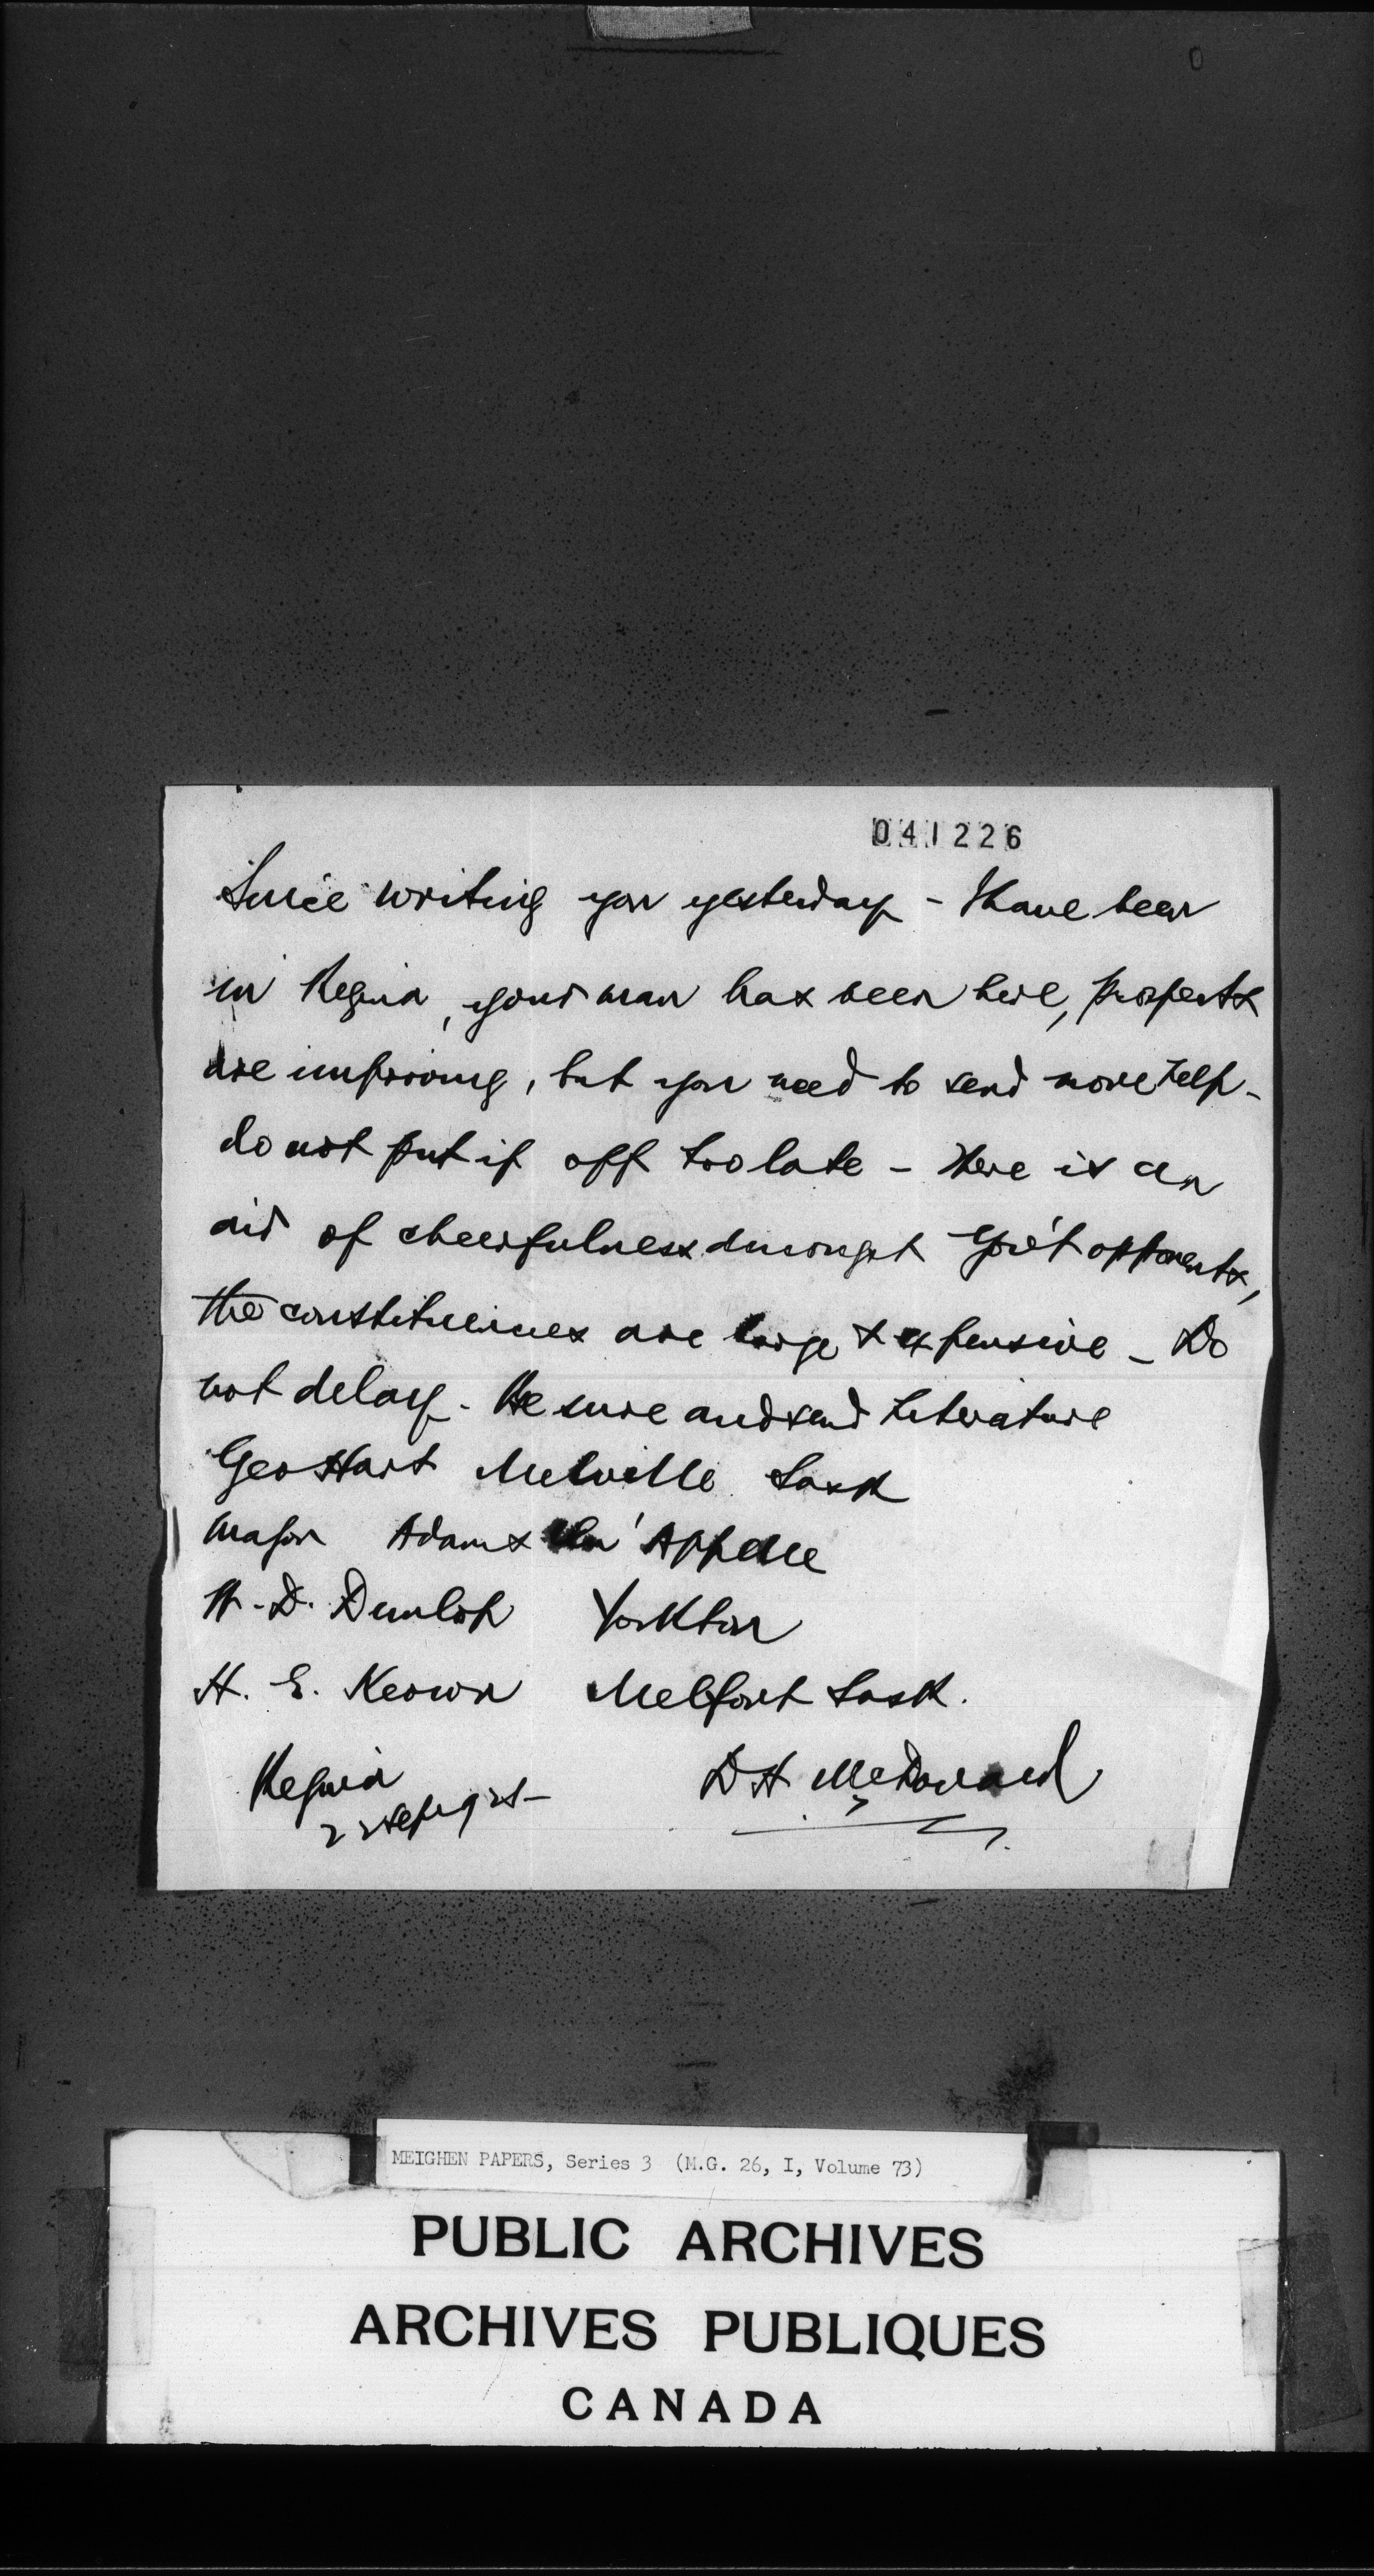 041226
Since writing you yesterday - I have been
in Regina, your man has been here, prospects
are improving, but you need to send more help -
do not put it off too late - there is an
air of cheerfulness amongst Gov't opponents,
the constituencies are large & expensive - Do
not delay - Be sure and send literature
Geo Hart Melville Sask
Major Adams Qu'Appelle
W. D. Dunlop Yorkton
H. E. Keown Melfort Sask.
Regina D H McDonald
22 Sept
MEIGHEN PAPERS, Series 3 (M.G. 26, I, Volume 73)
PUBLIC ARCHIVES
ARCHIVES PUBLIQUES
CANADA